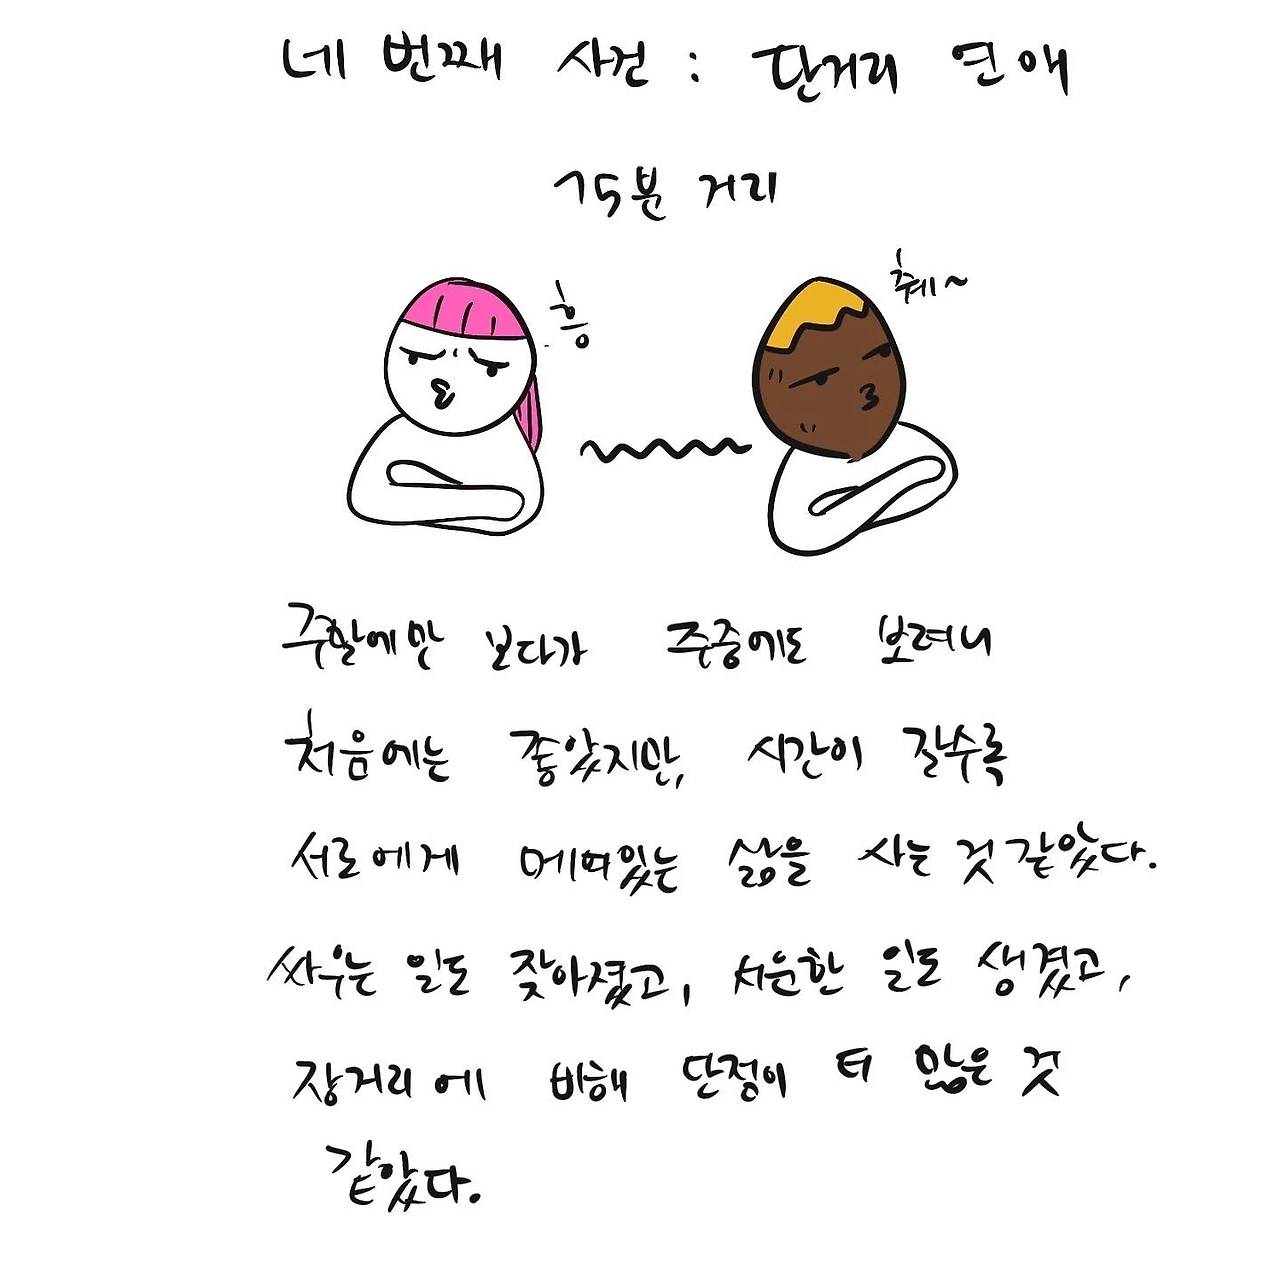 네 번째 사건 : 단거리 연애
75분 거리
흥
췌~
주말에만 보다가 주중에도 보려니
처음에는 좋았지만, 시간이 갈수록
서로에게 메여있는 삶을 사는 것 같았다.
싸우는 일도 잦아졌고, 서운한 일도 생겼고,
장거리에 비해 단점이 더 많은 것
같았다.